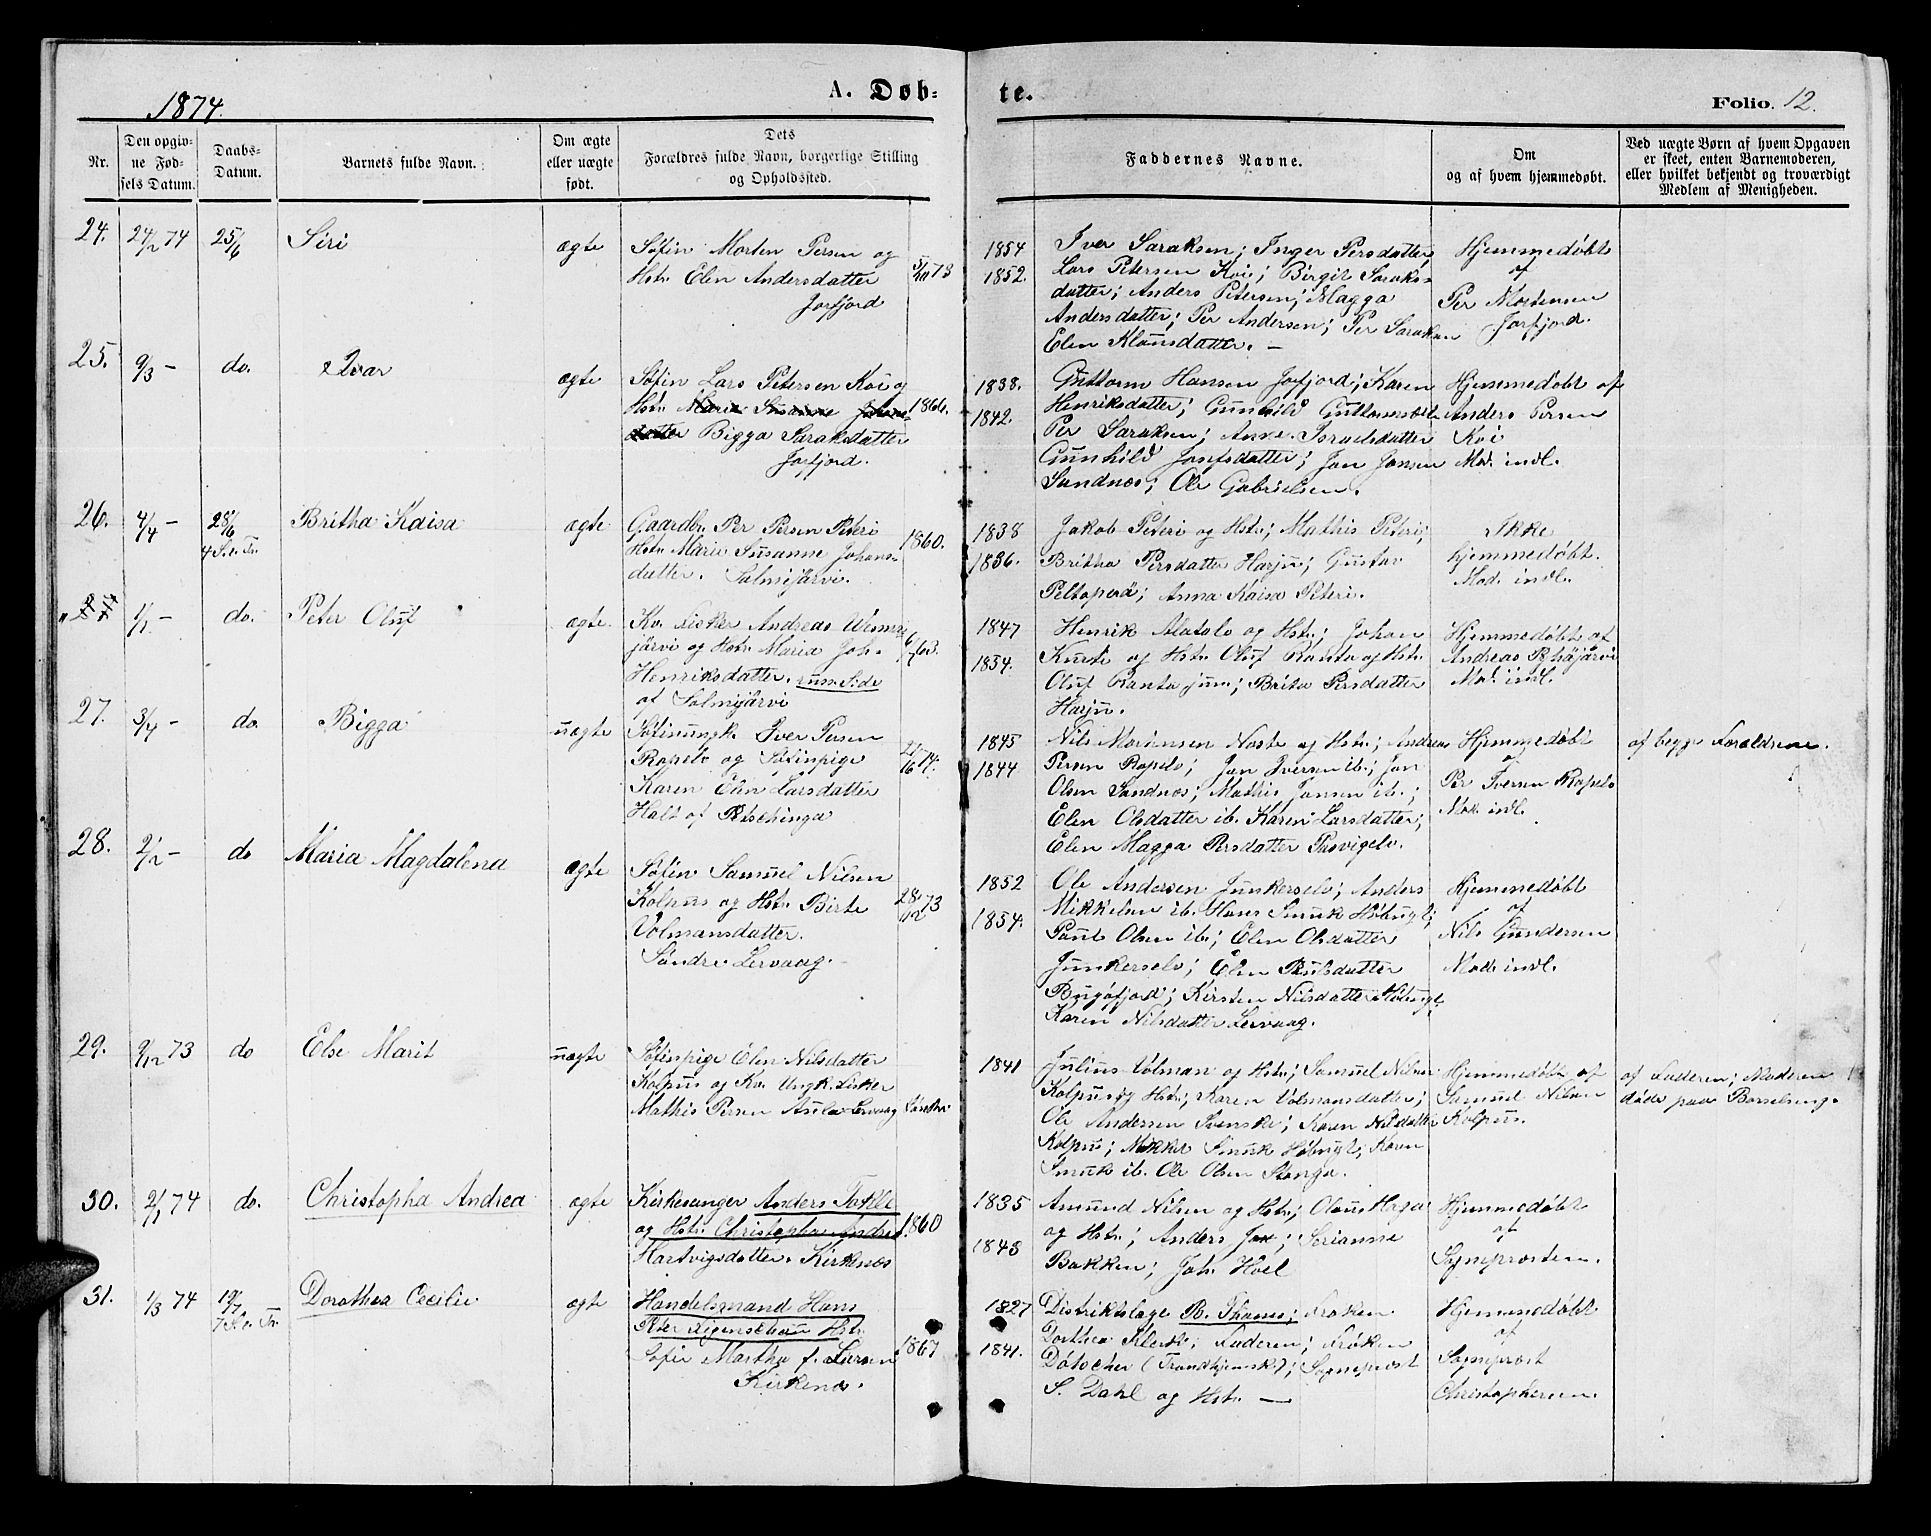 1874.
A. Døb-
te.
Folio. 12.
Nr.
Den opgiv-
ne Fød-
sels Datum.
Daabs-
Datum.
Barnets fulde Navn.
Om ægte
eller uægte
født.
Dets
Forældres fulde Navn, borgerlige Stilling
og Opholdssted.
Faddernes Navne.
Om
og af hvem hjemmedøbt.
Ved uægte Børn af hvem Opgaven
er skeet, enten Barnemoderen,
eller hvilket bekjendt og troværdigt
Medlem af Menigheden.
24. 24/2 74 25/6 Siri ægte
Søfin Morten Persen og
Hstr. Elen Andersdatter
Jarfjord
5/10 73
1854
1852.
Iver Saraksen; Inger Persdatter
Lars Petersen Koi; Birgit Saraks-
datter; Anders Petersen; Magga
Andersdatter; Per Andersen; Per Saraksen
Elen Klausdatter. —
Hjemmedøbt
af
Per Mortensen
Jarfjord.
25. 9/3 — do. Ivar ægte
Søfin Lars Petersen Koi og
Hstr. Maria Susanne Johans-
datter Bigga Saraksdatter
Jarfjord.
1866.
1838.
1842.
Guttorm Hansen Jarfjord; Karen
Henriksdatter; Gunhild Guttormsdtr
Per Saraksen; Anne Israelsdatter
Gunhild Josefsdatter; Jon Jonsen
Sandnes; Ole Gabrielsen.
Hjemmedøbt af
Anders Persen
Koi
Mod. indl.
26. 4/4 — 28/6
4 S. e. Tr.
Britha Kaisa ægte
Gaardbr. Per Persen Peteri
Hstr. Maria Susanne Johans-
datter. Salmijärvi.
1860.
1838
1836.
Jakob Peteri og Hstr; Mathis Peteri;
Britha Persdatter Harju; Gustav
Peltoperä; Anna Kaisa Peteri.
Ikke
hjemmedøbt.
Mod. indl.
1/1 — do. Peter Oluf ægte.
Kv. Fisker Andreas
järvi og Hstr. Maria Joh.
Henriksdatter. russ. Side
af Salmijärvi
1847
1834.
Henrik Alatalo og Hstr; Johan
Kurti og Hstr. Oluf Ranta og Hstr.
Oluf Ranta jun; Brita Persdatter
Harju.
Hjemmedøbt af
Andreas
Mod. indl.
27. 3/4 — do. Bigga uægte
Søfinungk. Iver Persen
Rapelo og Søfinpige
Karen Elen Larsdatter
Halt af Petschinga
1845
1844
Nils Mortensen Noste og Hstr; Andreas
Persen Rapelo; Jon Iversen ib.; Jon
Olsen Sandnes; Mathis Jonsen ib.;
Elen Olsdatter ib. Karen Larsdatter;
Elen Magga Persdatter Pasvigelv.
Hjemmedøbt
af
Per Iversen Rapelo
Mod. indl.
af begge Forældrene.
28. 2/2 — do Maria Magdalena ægte
Søfin Samuel Nilsen
Kolpus og Hstr. Birte
Volmansdatter.
Søndre Lervaag.
28/12 73
1852
1854.
Ole Andersen Junkerselv; Anders
Mikkelsen ib. Hans Smuk Høbugt;
Paul Olsen ib.; Elen Olsdatter
Junkerselv; Elen Paulsdatter
Bugøfjord; Kirsten Nilsdatter Høbugt
Karen Nilsdatter Lervaag.
Hjemmedøbt
af
Nils Gundersen
Mod. indl.
29. 9/12 73 do Else Marit uægte
Søfinpige Elen Nilsdatter
Kolpus og Kv. Ungk. Fisker
Mathis Persen Aula Lervaag Søndre
1841
Julius Volman og Hstr; Samuel Nilsen
Kolpus og Hstr; Karen Volmansdatter;
Ole Andersen Svenske; Karen Nilsdatter
Kolpus; Mikkel Smuk Høbugt; Karen
Smuk ib. Ole Olsen Stonga.
Hjemmedøbt af
Samuel Nilsen
Kolpus.
af Faderen; Moderen
døde paa Barselseng.
30. 2/1 74 do. Christopha Andrea ægte
Kirkesanger Anders Takle
og Hstr. Christopha Andrea
Hartvigsdatter. Kirkenes
1860
1835
1843
Amund Nilsen og Hstr; Olaus Haga
og Hstr; Anders Jak; Serianne
Bakken; Joh. Hoel
Hjemmedøbt
af
Sogneprosten.
31. 1/3 74 19/7
7 S. e. Tr.
Dorothea Cecilie ægte
Handelsmand Hans
Peter Figenschau Hstr.
Sofie Martha f. Larsen
Kirkenes.
1867
1827
1841.
Distriktslæge B. Thams; Frøken
Dorthea Klerk; Faderen; Frøken
Døtscher (Trondhjemsk.); Sogneprest
S. Dahl og Hstr. —
Hjemmedøbt
af
Sogneprost
Christophersen.